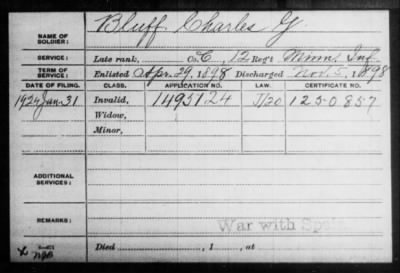 NAME OF SOLDIER: Bluff, Charles G.
SERVICE: Late rank, Co. C, 12 Reg't Minn. Inf.
TERM OF SERVICE: Enlisted Apr. 29, 1898 Discharged Nov. 5, 1898
DATE OF FILING. CLASS. APPLICATION NO. CERTIFICATE NO.
1924 Jan-31 Invalid, 1495124 1250857
Widow,
Minor,
ADDITIONAL SERVICES:
REMARKS: War with Spain
Died , 1 , at